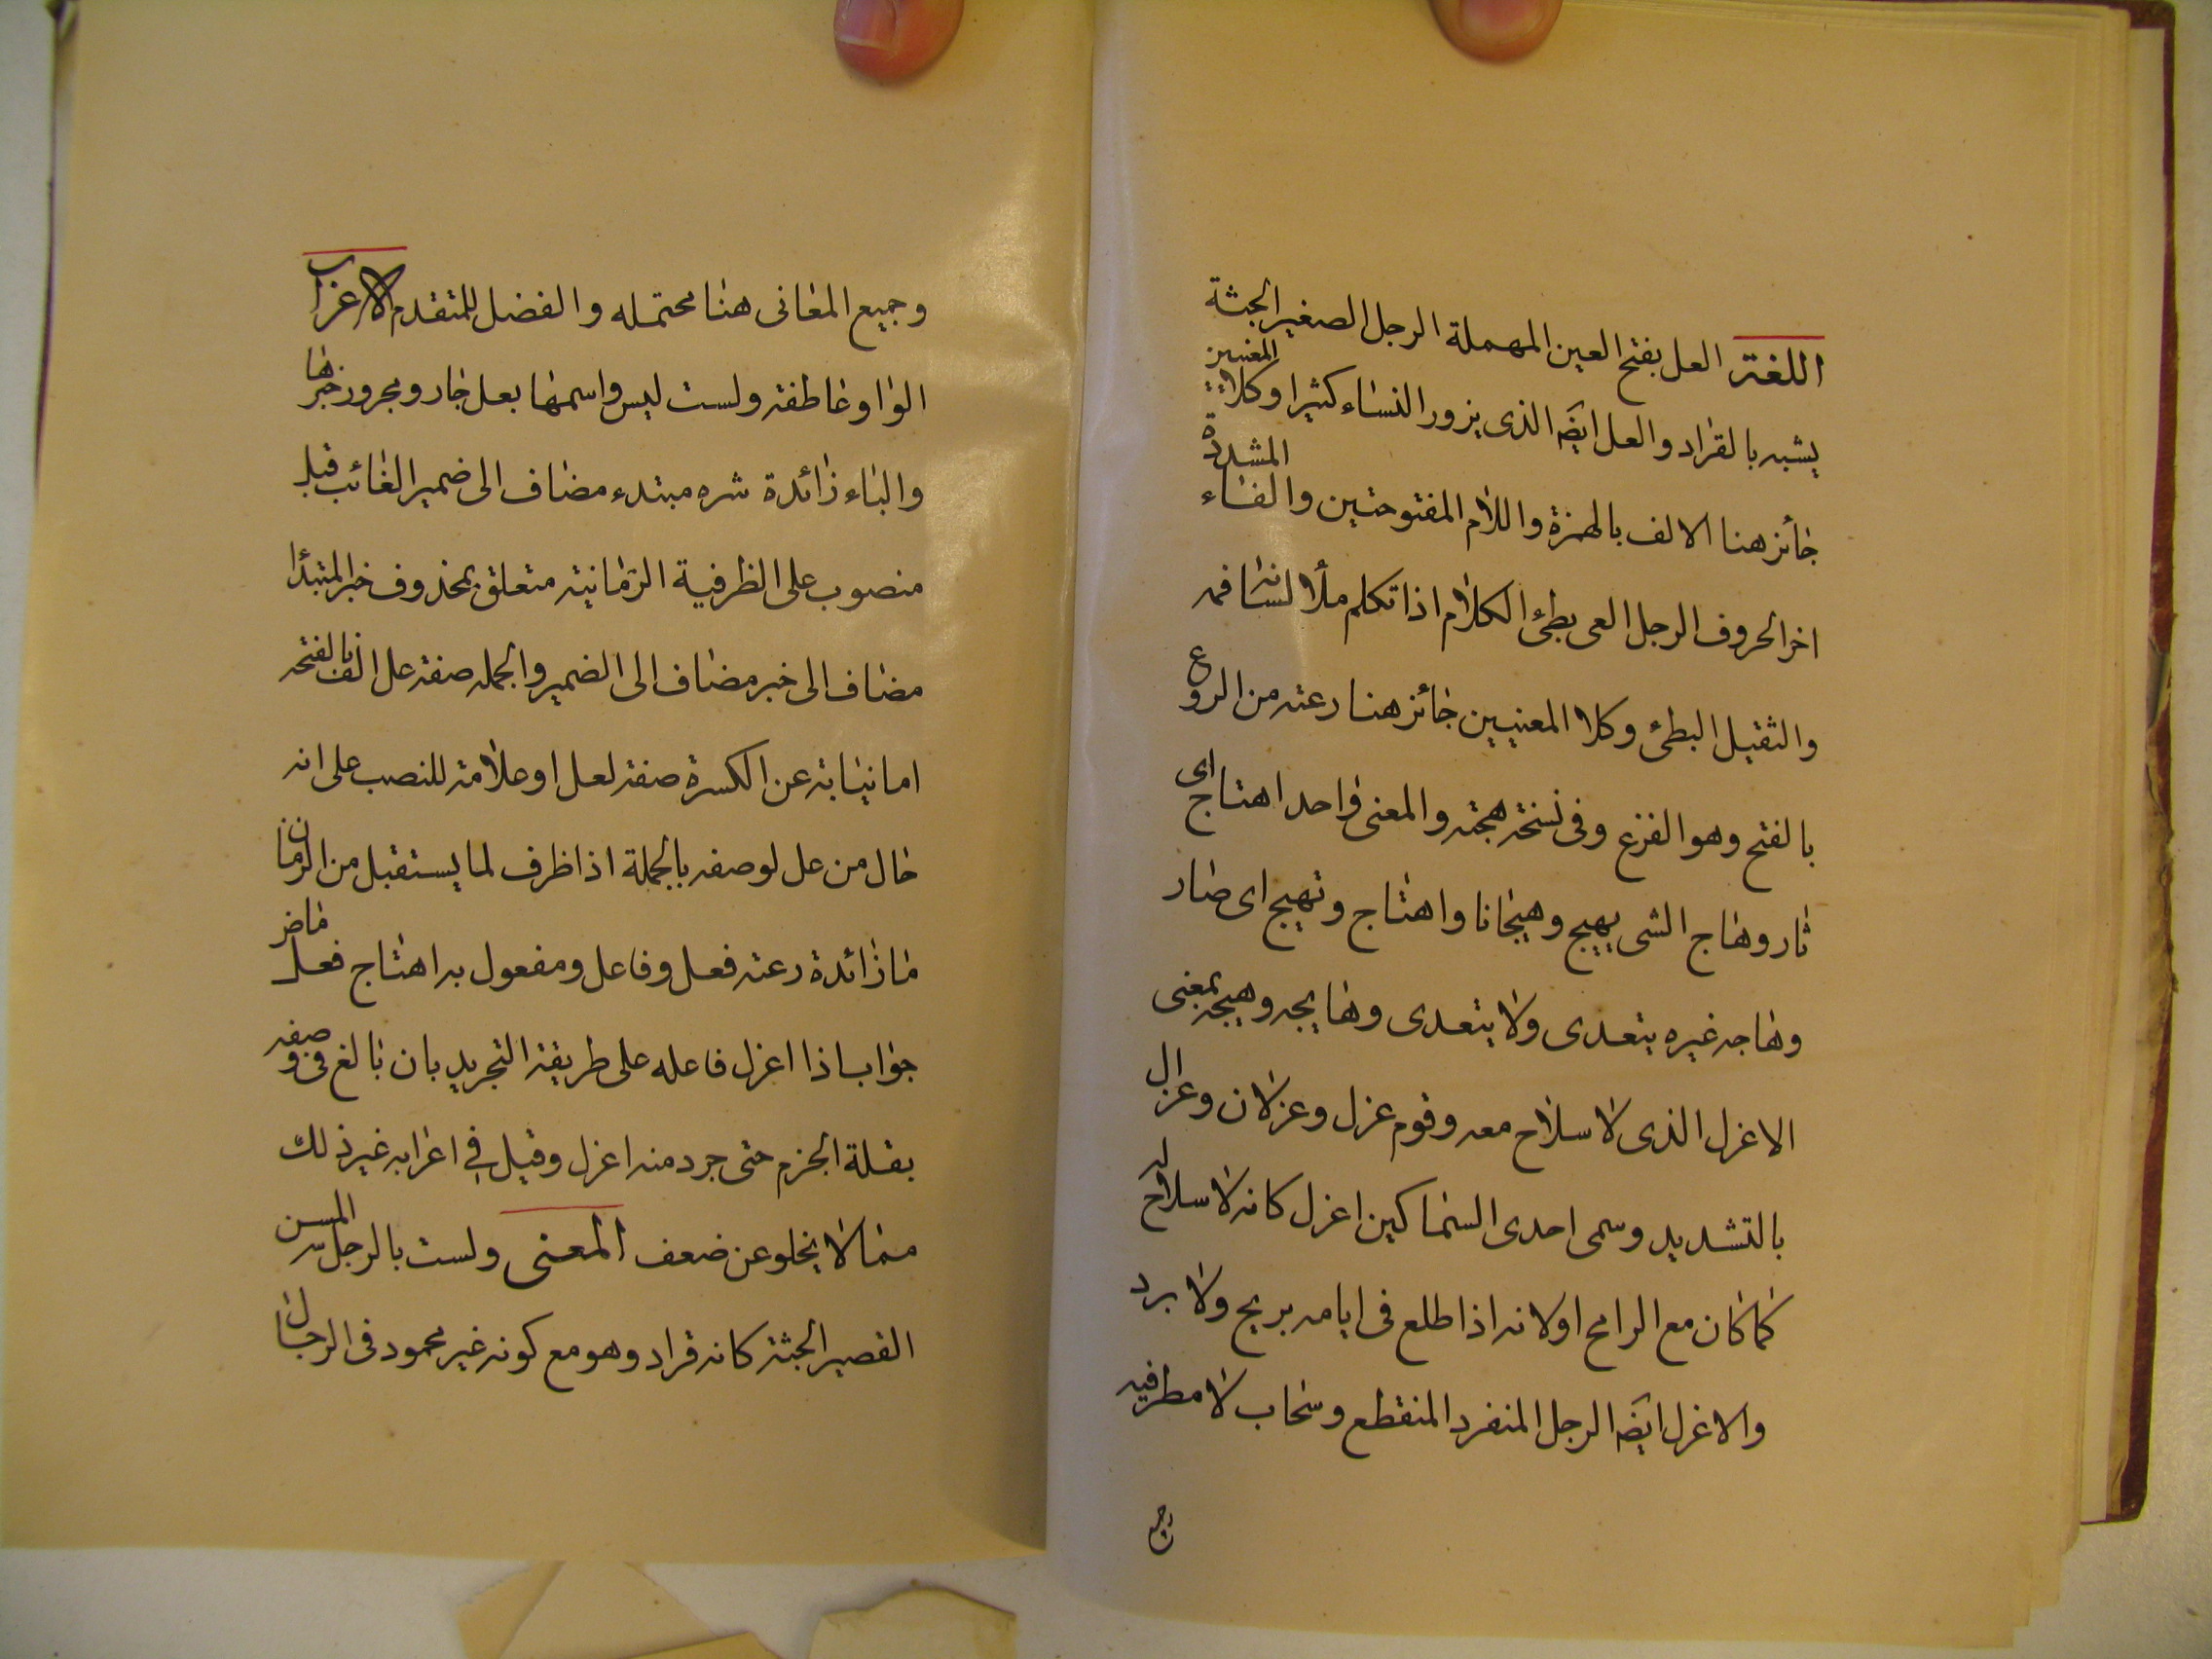 اللغة العل بفتح العين المهملة الرجل الصغير الجثة
يشبه بالقراد والعل ايضَه الذى يزور النساء كثيرا وكلا المعنيين
جائز هنا الالف بالهمزة واللام المفتوحتين والفاء المشددة
اخر الحروف الرجل العى بطئ الكلام اذا تكلم ملأ لسانه فمه
والثقيل البطئ وكلا المعنيين جائز هنا رعته من الروع
بالفتح وهو الفزع وفى نسخة هجته والمعنى واحد اهتاج اى
ثار وهاج الشى يهيج وهيجانا واهتاج وتهيج اى صار
وهاجه غيره يتعدى ولا يتعدى وهايجه وهيجه بمعنى
الاعزل الذى لا سلاح معه وقوم عزل وعزلان وعزال
بالتشديد وسمى احدى السماكين اعزل كانه لا سلاح له
كما كان مع الرامح اولانه اذا طلع فى ايامه بريح ولا برد
والاعزل ايضَه الرجل المنفرد المنقطع وسحاب لا مطر فيه
وجميع المعانى هنا محتمله والفضل للمتقدم الاعراب
الواو عاطفة ولست ليس واسمها بعل جار ومجرور خبرها
والباء زائدة شره مبتدء مضاف الى ضمير الغائب قبل
منصوب على الظرفية الزمانية متعلق بمحذوف خبر المبتدأ
مضاف الى خبر مضاف الى الضمير والجمله صفة عل الف بالفتحة
اما نيابة عن الكسرة صفة لعل او علامة للنصب على انه
حال من عل لوصفه بالجملة اذا ظرف لما يستقبل من الزمان
ما زائدة رعته فعل وفاعل ومفعول به اهتاج فعل ماض
جواب اذا اعزل فاعله على طريقة التجريد بان بالغ فى وصفه
بقلة الجزم حتى جرد منه اعزل وقيل فى اعرابه غير ذلك
مما لا يخلو عن ضعف المعنى ولست بالرجل المسن
القصير الجثة كانه قراد وهو مع كونه غير محمود فى الرجال